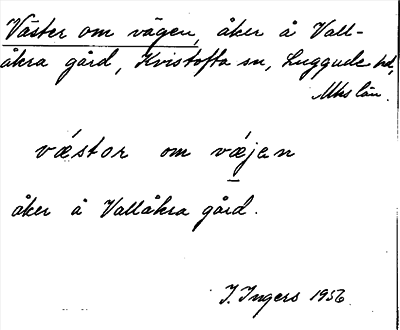 Väster om vägen, åker å Vall-
åkra gård, Kvistofta sn, Luggude hd,
Mhs län.
vǽstor om vǽjan
åker å Vallåkra gård.
I. Ingers 1956.